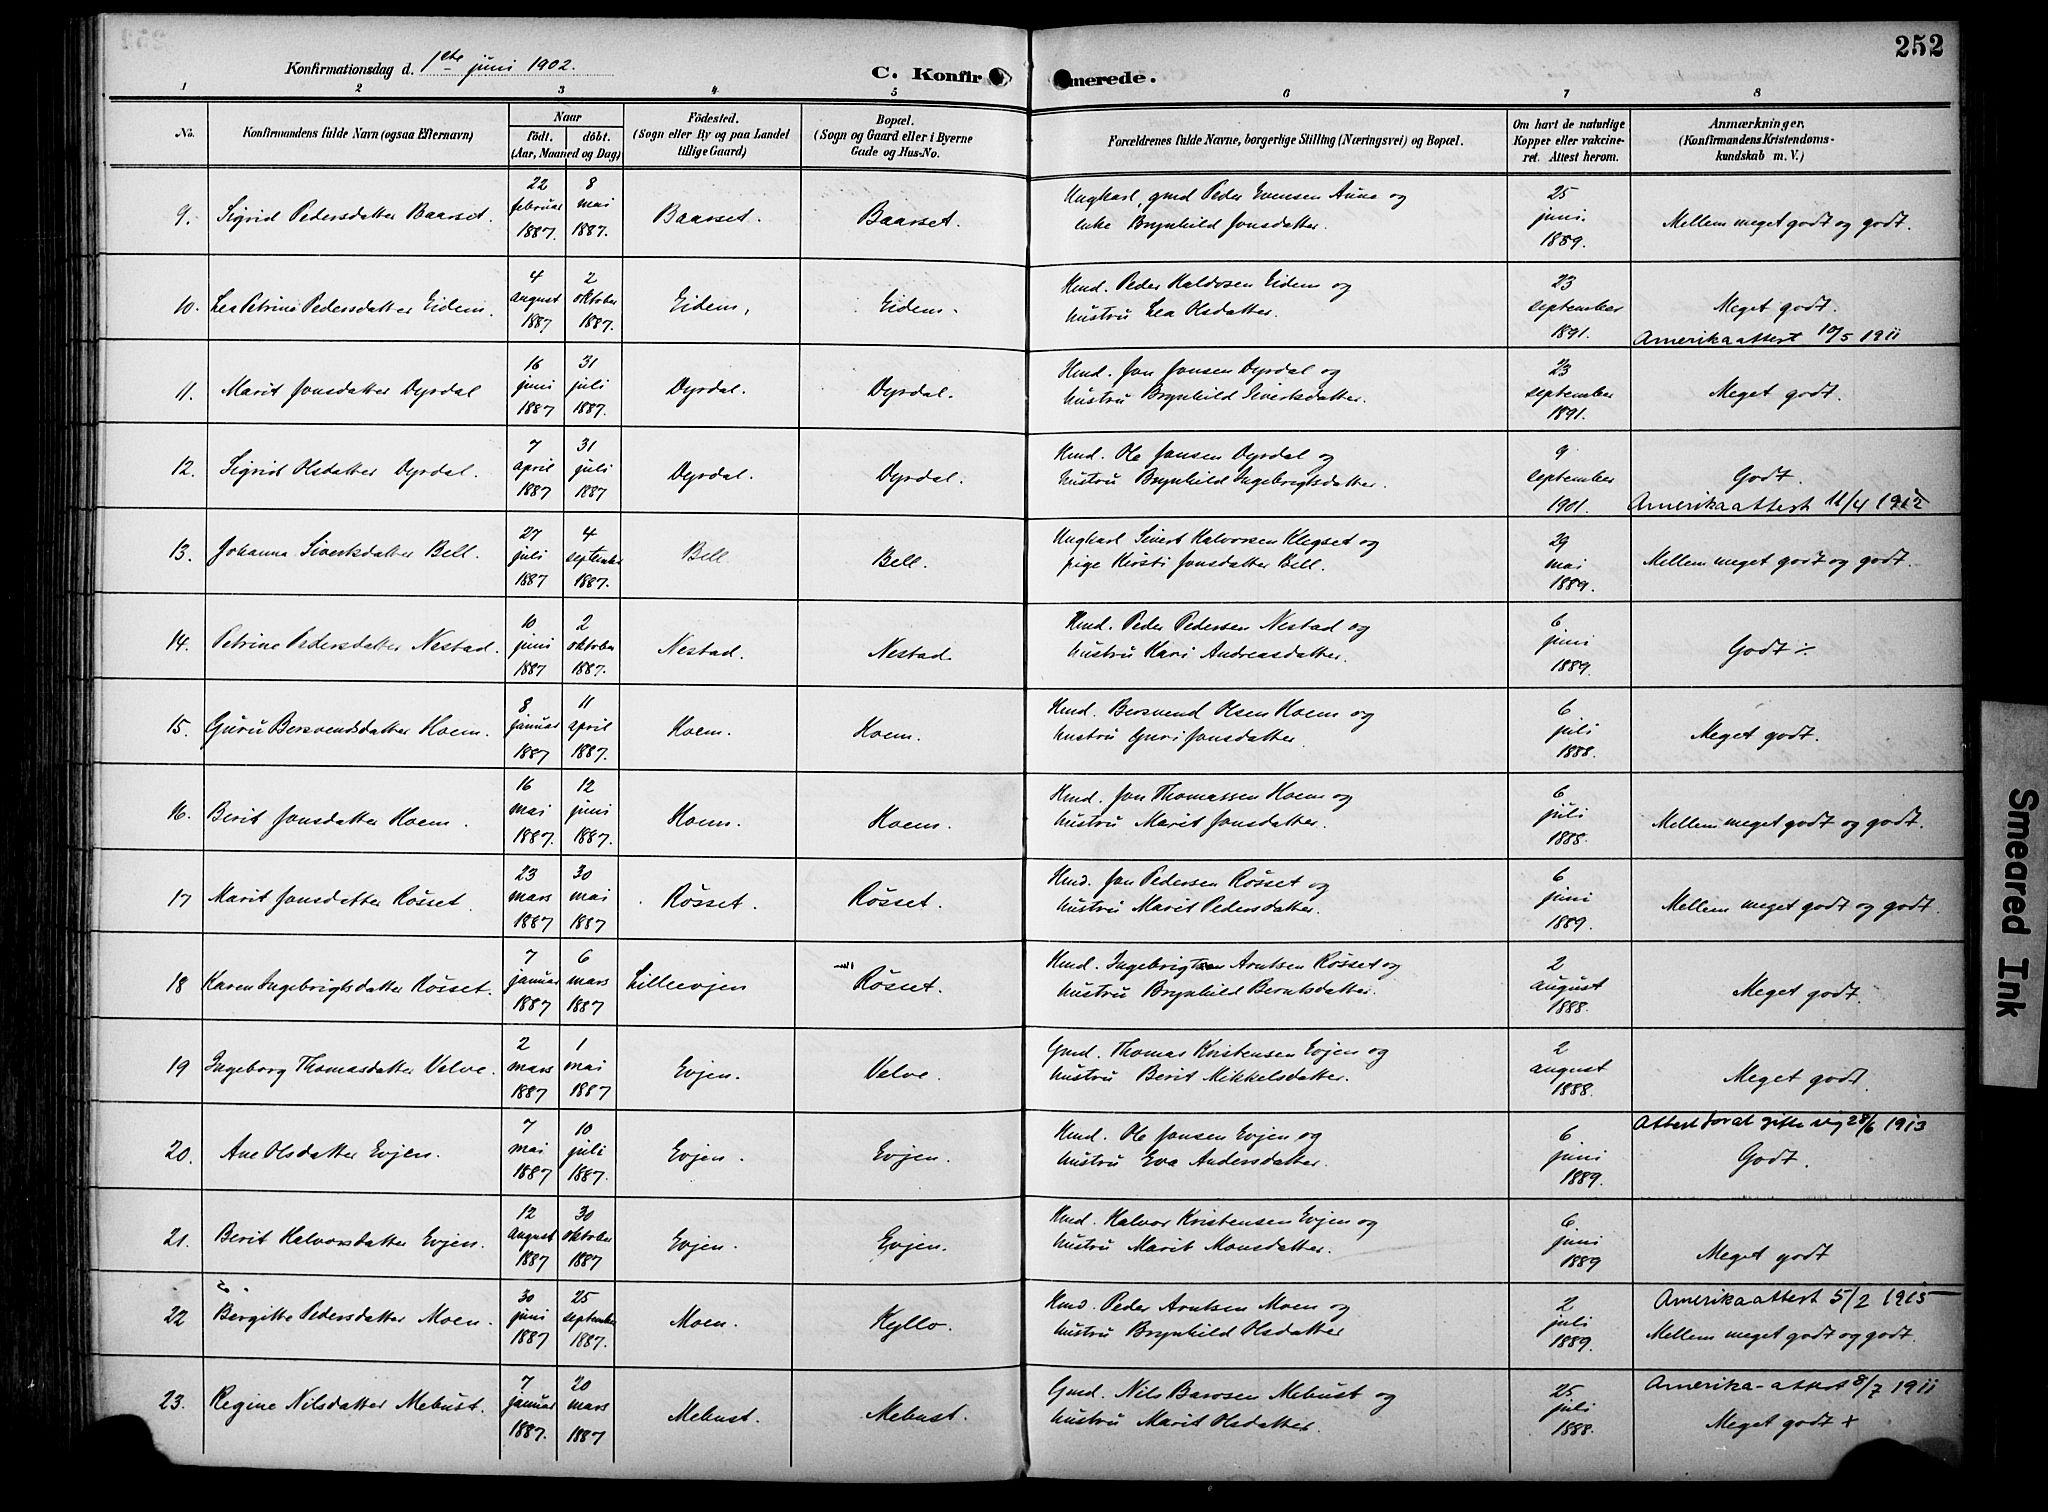 252
Konfirmationsdag d. 1ste juni 1902.
C. Konfirmerede.
1 2 3 4 5 6 7 8
No.
Konfirmandens fulde Navn (ogsaa Efternavn)
Naar
födt. döbt.
(Aar, Maaned og Dag)
Födested.
(Sogn eller By og paa Landet
tillige Gaard)
Bopæl.
(Sogn og Gaard eller i Byerne
Gade og Hus-No.
Forældrenes fulde Navne, borgerlige Stilling (Næringsvei) og Bopæl.
Om havt de naturlige
Kopper eller vakcine-
ret. Attest herom.
Anmærkninger,
(Konfirmandens Kristendoms-
kundskab m. V.)
9. Sigrid Pedersdatter Baarset.
22 februar 1887.
8 mai 1887.
Baarset.
Baarset.
Ungkarl, gmd Peder Evensen Aune og
enke Brynhild Jonsdatter.
25 juni 1889.
Mellem meget godt og godt.
10. Lea Petrine Pedersdatter Eidem.
4 august 1887
2 oktober 1887.
Eidem,
Eidem.
Kmd. Peder Haldosen Eidem og
hustru Lea Olsdatter.
23 september 1891.
Meget godt.
Amerikaattest 10/5 1911
11. Marit Jonsdatter Dyrdal
16 juni 1887
31 juli 1887.
Dyrdal.
Dyrdal.
Kmd. Jon Jonsen Dyrdal og
hustru Brynhild Sivertsdatter.
23 september 1891.
Meget godt.
12. Sigrid Olsdatter Dyrdal.
7 april 1887
31 juli 1887
Dyrdal.
Dyrdal.
Kmd. Ole Jonsen Dyrdal og
hustru Brynhild Ingebrigtsdatter.
9 september 1901.
Godt.
Amerikaattest 11/4 1912
13. Johanna Sivertsdatter Bell.
27 juli 1887
4 september 1887.
Bell.
Bell.
Ungkarl Sivert Halvorsen Klegset og
pige Kirsti Jonsdatter Bell.
29 mai 1889.
Mellem meget godt og godt.
14. Petrine Pedersdatter Nestad.
10 juni 1887
2 oktober 1887.
Nestad.
Nestad.
Kmd. Peder Pedersen Nestad og
hustru Kari Andreasdatter.
6 juni 1889.
Godt ÷
15. Guru Bersvendsdatter Hoem.
8 januar 1887
11 april 1887.
Hoem.
Hoem.
Kmd. Bersvend Olsen Hoem og
hustru Guri Jonsdatter.
6 juli 1888.
Meget godt.
16. Berit Jonsdatter Hoem.
16 mai 1887.
12 juni 1887.
Hoem.
Hoem.
Kmd. Jon Thomassen Hoem og
hustru Marit Jonsdatter.
6 juli 1888.
Mellem meget godt og godt.
17 Marit Jonsdatter Røsset.
23 mars 1887
30 mai 1887
Røsset.
Røsset.
Kmd. Jon Pedersen Røsset og
hustru Marit Pedersdatter.
6 juni 1889.
Mellem meget godt og godt.
18 Karen Ingebrigtsdatter Røsset.
7 januar 1887
6 mars 1887
Lilleevjen
Røsset.
Kmd. Ingebrigt Arntsen Røsset og
hustru Brynhild Berntsdatter.
2 august 1888.
Meget godt.
19 Ingeborg Thomasdatter Velve.
2 mars 1887
1 mai 1887
Evjen.
Velve.
Gmd. Thomas Kristensen Evjen og
hustru Berit Mikkelsdatter.
2 august 1888.
Meget godt.
20. Ane Olsdatter Evjen.
7 mai 1887
10 juli 1887.
Evjen.
Evjen.
Kmd. Ole Jonsen Evjen og
hustru Eva Andersdatter.
6 juni 1889.
Attest for at gifte sig 28/6 1913
Godt.
21. Berit Halvorsdatter Evjen.
12 august 1887
30 oktober 1887
Evjen.
Evjen.
Kmd. Halvor Kristensen Evjen og
hustru Marit Monsdatter.
6 juni 1889
Meget godt
22 Bergitte Pedersdatter Moen.
30 juni 1887
25 september 1887.
Moen.
Kyllo.
Kmd. Peder Arntsen Moen og
hustru Brynhild Olsdatter
2 juli 1889.
Amerikaattest 5/2 1915
Mellem meget godt og godt.
23. Regine Nilsdatter Mebust.
7 januar 1887.
20 mars 1887
Mebust.
Mebust.
Gmd. Nils Barosen Mebust og
hustru Marit Olsdatter.
25 juli 1888.
Amerika-attest 8/7 1911
Meget godt +
Smeared Ink